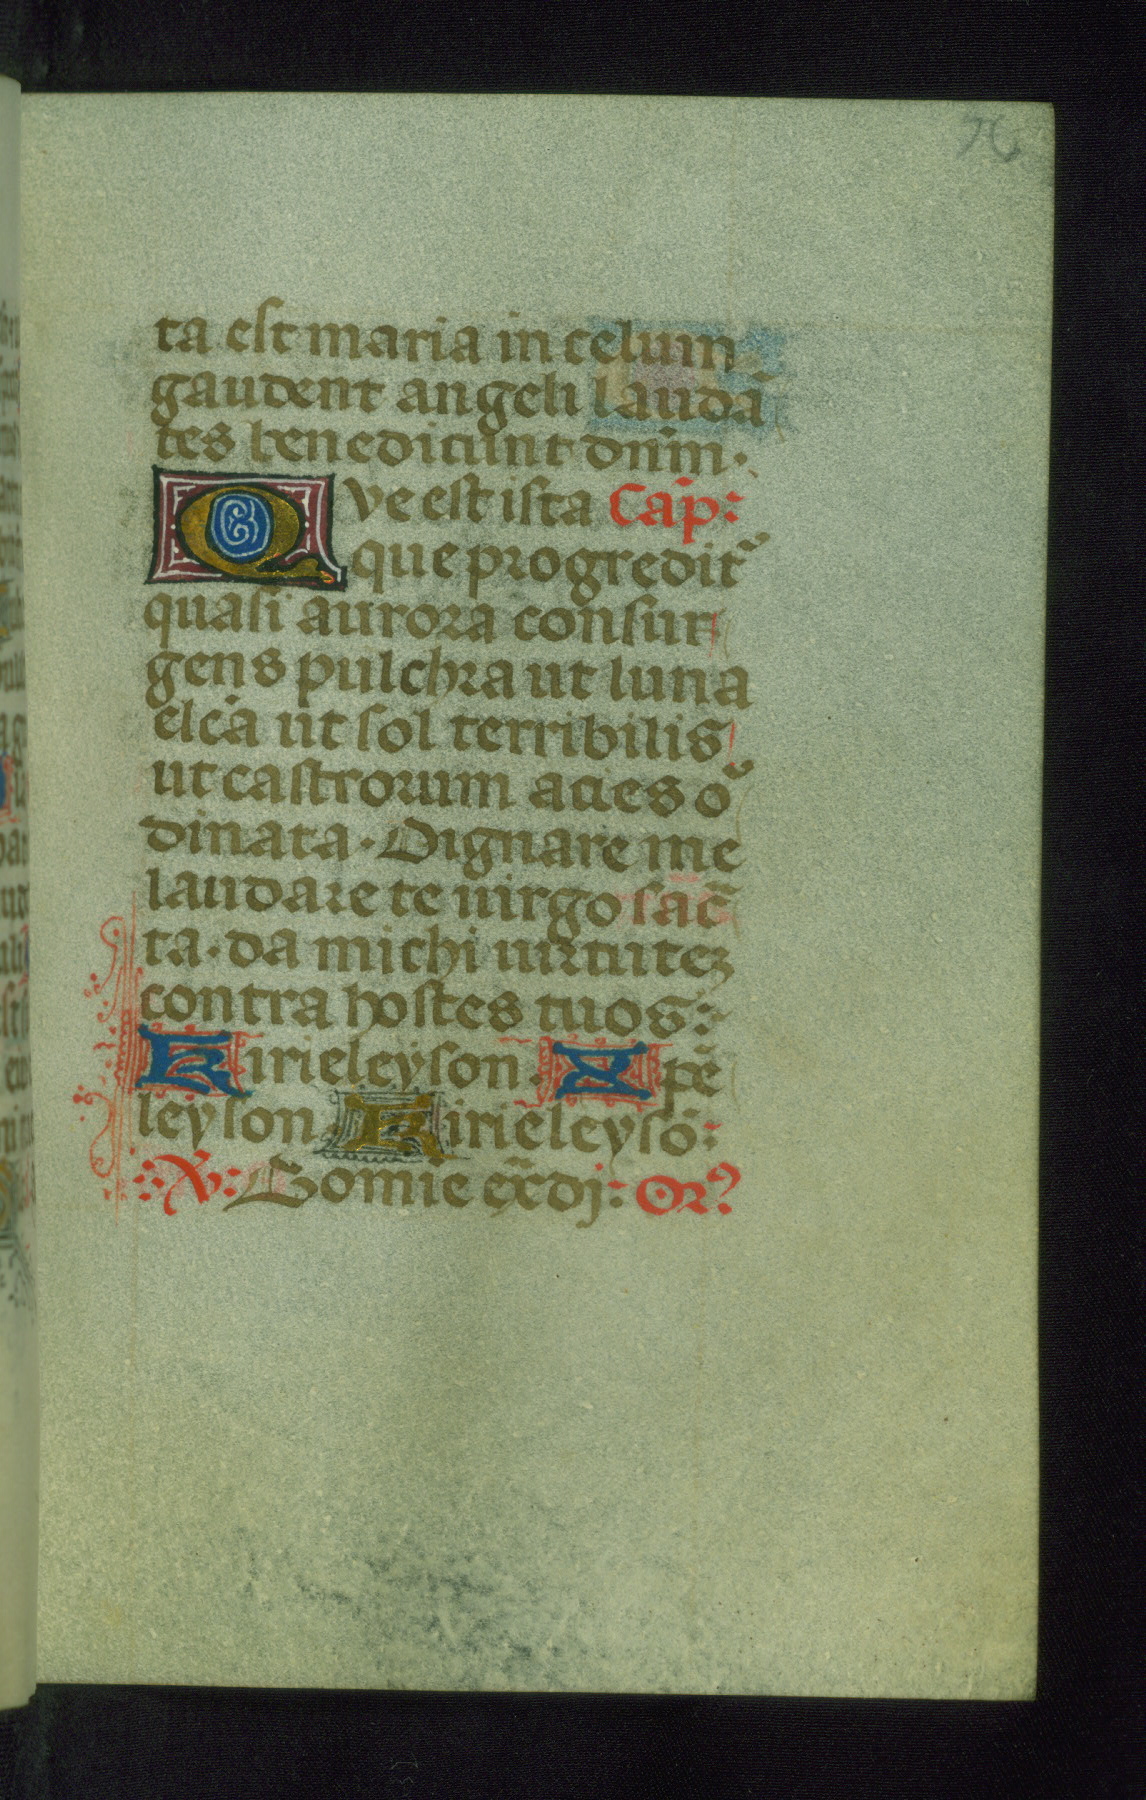 76
ta est maria in celum
gaudent angeli laudā
tes benedicunt dnm̄.
Que est ista Cap̄:
que progredit᷑
quasi aurora consur
gens pulchra ut luna
elcā ut sol terribilis
ut castrorum acies o᷑
dinata. Dignare me
laudare te uirgo sac̄
ta. da michi uirtutez
contra hostes tuos:
Kirieleyson. Xpē
leyson. Kirieleysō:
V: Domīe ex̄di: Or᷑